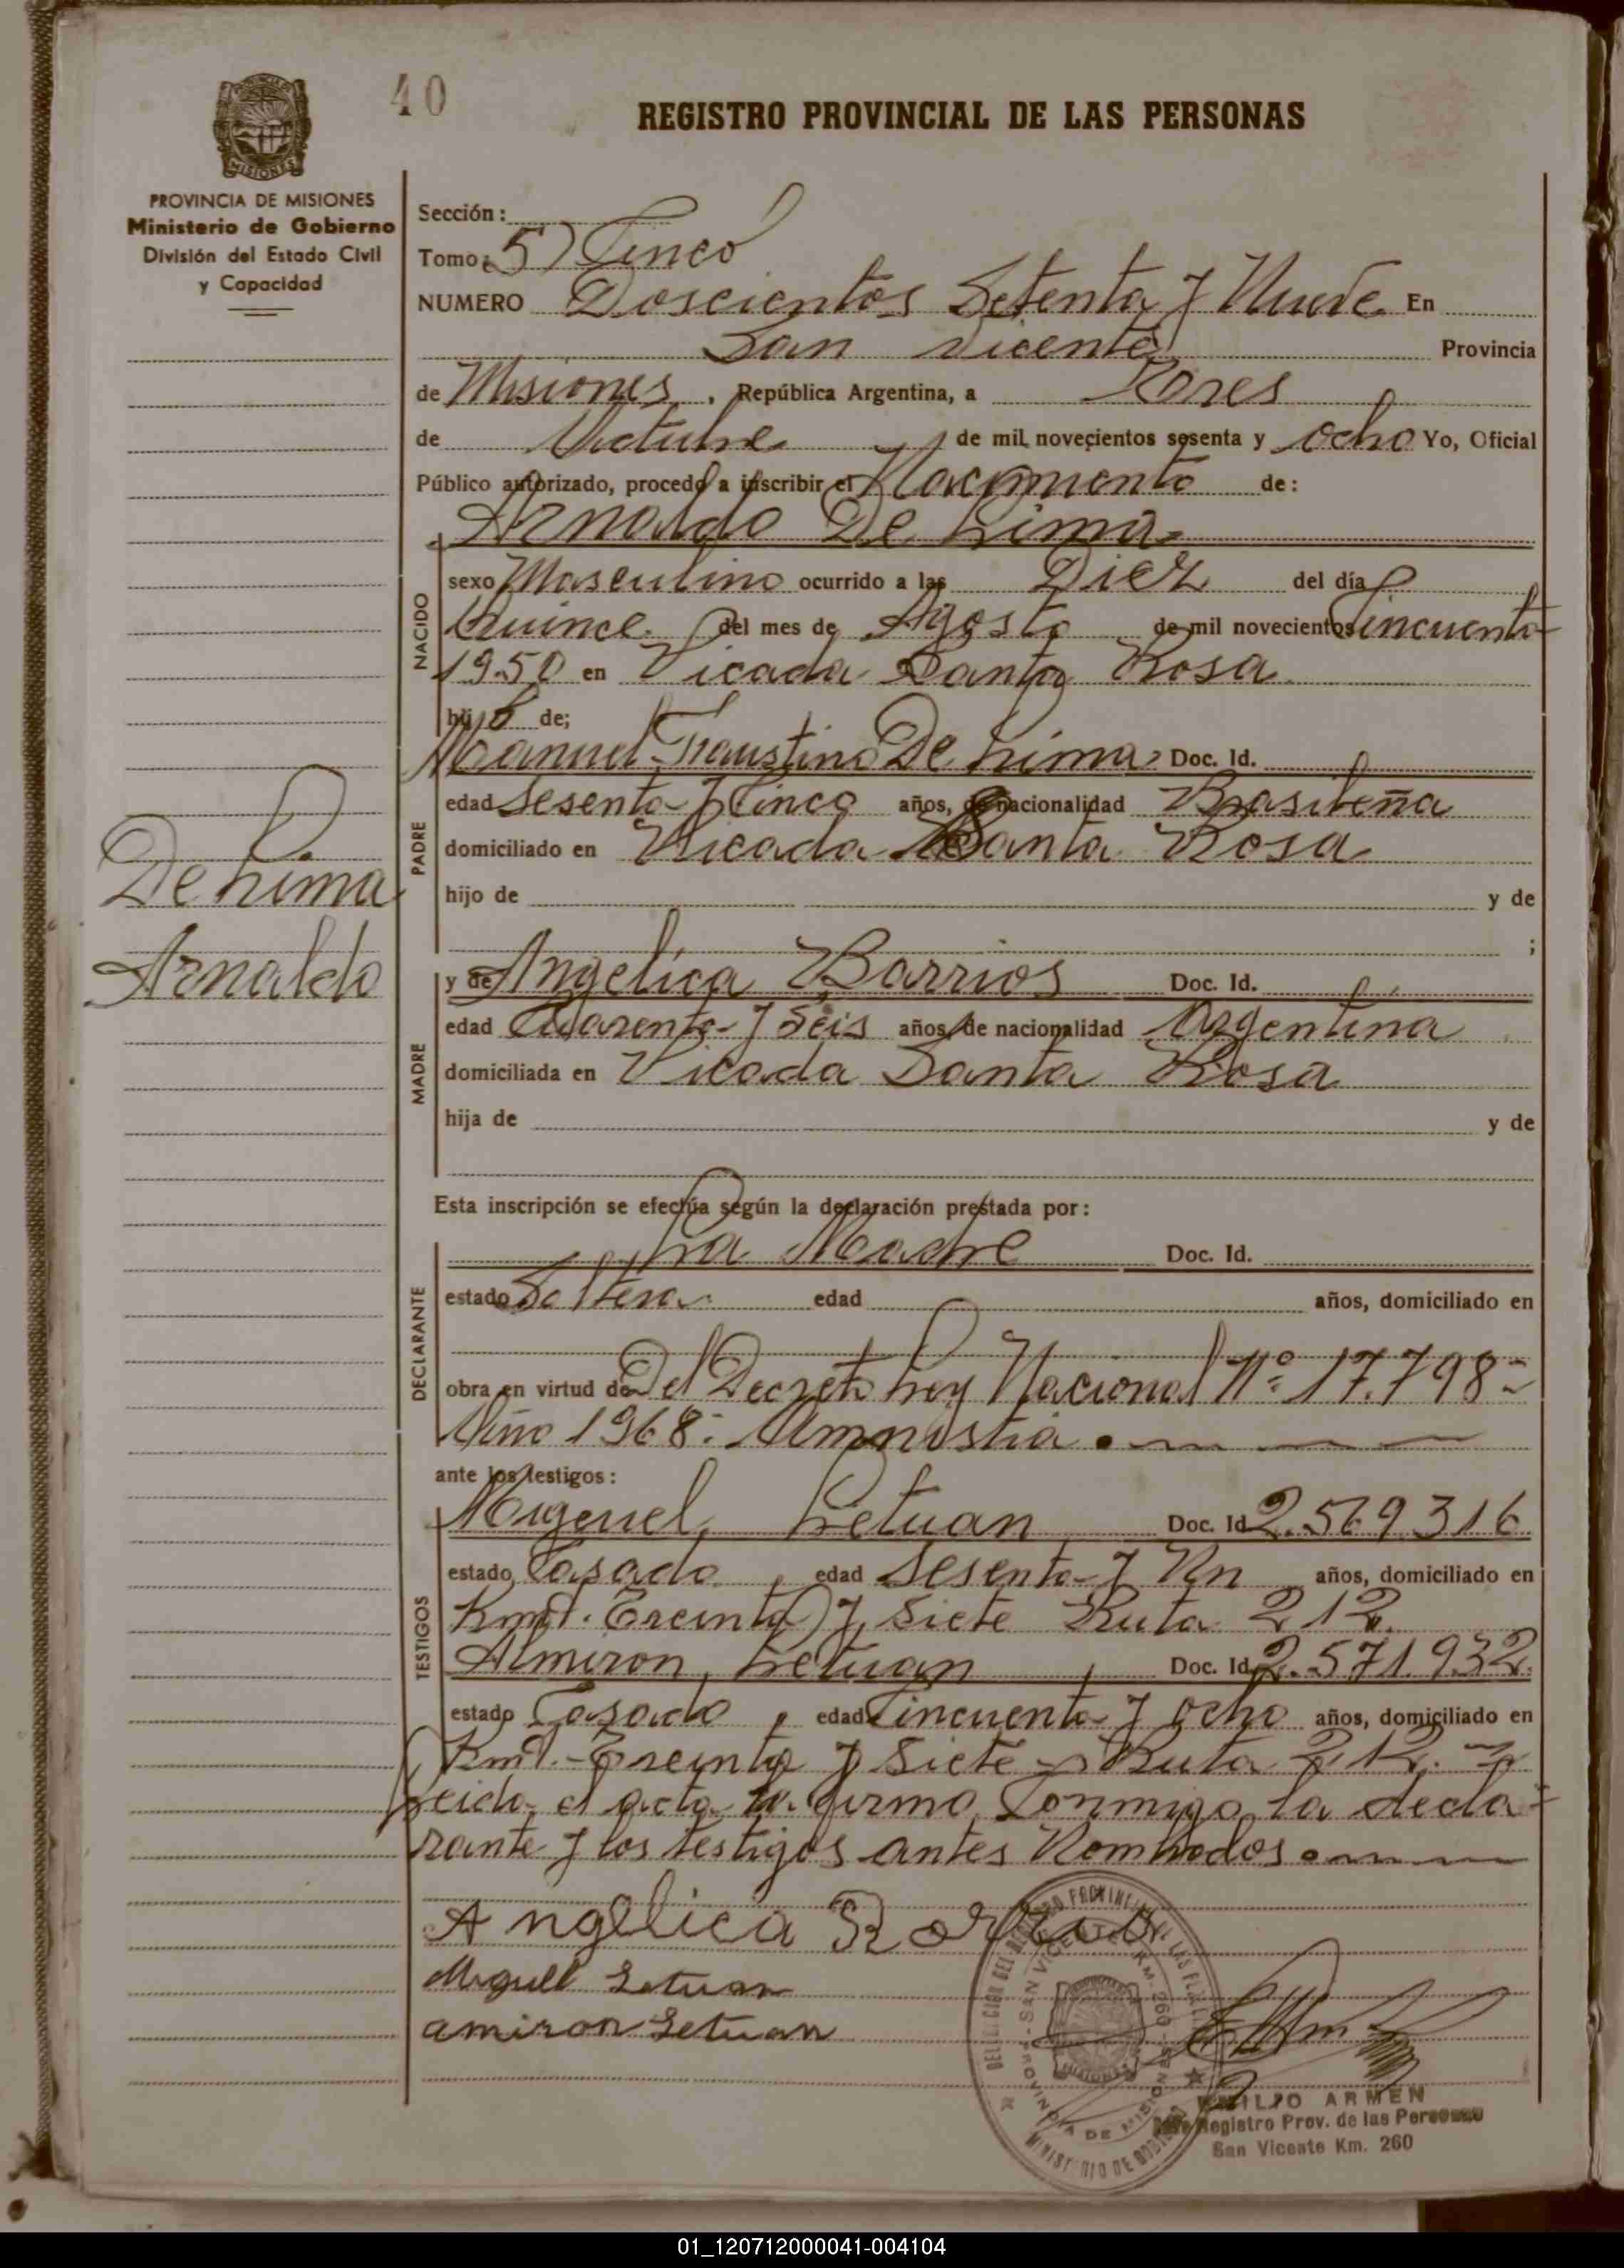 40
REGISTRO PROVINCIAL DE LAS PERSONAS
PROVINCIA DE MISIONES
Ministerio de Gobierno
División del Estado Civil
y Capacidad
Sección:
Tomo: 5) Cinco
NUMERO Doscientos Setenta y Nueve En
San Vicente Provincia
de Misiones, República Argentina, a Tres
de Octubre de mil novecientos sesenta y ocho Yo, Oficial
Público autorizado, procedo a inscribir el Nacimiento de:
Arnaldo De Lima
NACIDO
sexo Masculino ocurrido a las Diez del día
Quince del mes de Agosto de mil novecientos Cincuenta
1950 en Picada Santa Rosa
hijo de;
PADRE
Manuel Faustino De Lima Doc. Id.
edad Sesenta y Cinco años, de nacionalidad Brasileña
domiciliado en Picada Santa Rosa
hijo de y de
;
De Lima
Arnaldo
MADRE
y de Angelica Barrios Doc. Id.
edad Cuarenta y Seis años, de nacionalidad Argentina
domiciliada en Picada Santa Rosa
hija de y de
Esta inscripción se efectúa según la declaración prestada por:
DECLARANTE
La Madre Doc. Id.
estado Soltera edad años, domiciliado en
obra en virtud de Del Decreto Ley Nacional Nº 17.798-
Año 1968. Amnistia.
ante los testigos:
TESTIGOS
Miguel, Letuan Doc. Id. 2.569.316
estado Casado, edad Sesenta y Un años, domiciliado en
Kmt. Treinta y Siete Ruta 212.
Almiron, Letuan, Doc. Id. 2.571.932.
estado Casado, edad Cincuenta y Ocho años, domiciliado en
Kmt. Treinta y Siete - Ruta 212.
Leida el acta la firma Conmigo la decla-
rante y los testigos antes Nombrados.
Angelica Barrios
Miguel Letuan
amiron Letuan
SAN VICENTE KM. 260
PROVINCIA DE MISIONES
MINISTERIO DE GOBIERNO
EMILIO ARMEN
Jefe Registro Prov. de las Personas
San Vicente Km. 260
01_120712000041-004104